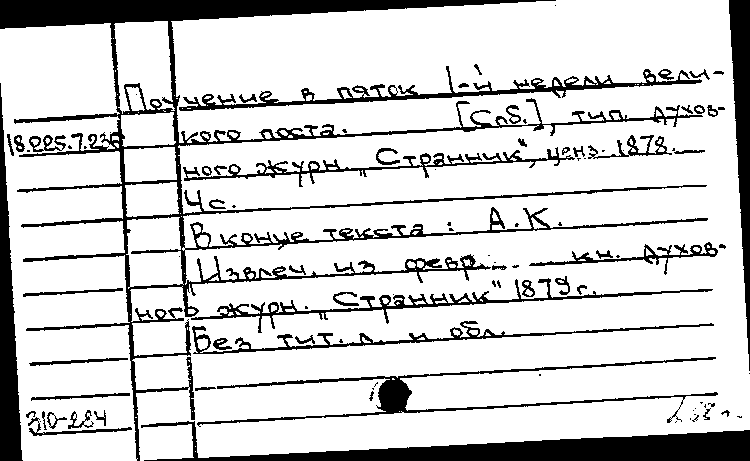 Поучение в пяток 1-й недели вели-
18.225.7.236 кого поста. [Спб.], тип. духов-
ного журн. „Странник“, ценз. 1878.
4 с.
В конце текста: А.К.
„Извлеч. из февр. ... кн. духов-
ного журн. „Странник“ 1879 г.
Без тит. л. и обл.
310-284